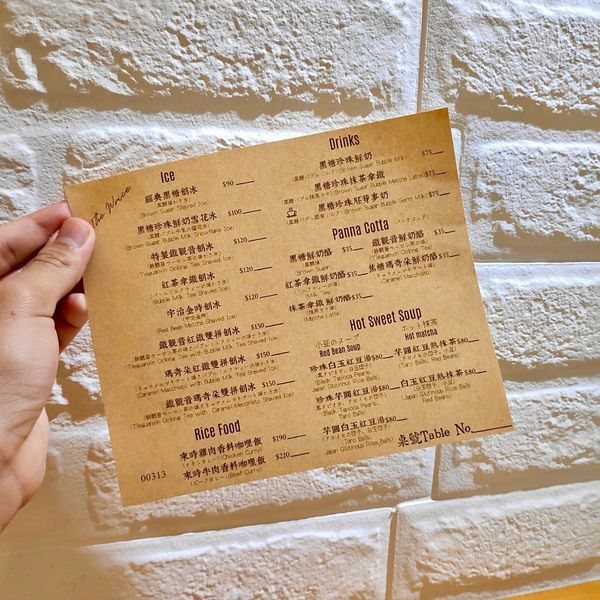 the Wace
Ice
經典黑糖刨冰 $90
(黒糖味かき氷)
(Brown Sugar Shaved Ice)
黑糖珍珠鮮奶雪花冰 $100
(Brown Sugar Bubble Milk Snowflake Ice)
特製鐵觀音刨冰 $120
(Tieguanyin Oolong Tea Shaved Ice)
紅茶拿鐵刨冰 $120
(Bubble Milk Tea Shaved Ice)
宇治金時刨冰 $120
(宇治金時)
(Red Bean Matcha Shaved Ice)
鐵觀音紅鐵雙拼刨冰 $150
(Tieguanyin Oolong Tea with Bubble Milk Tea Shaved Ice)
瑪奇朵紅鐵雙拼刨冰 $150
(Caramel Macchiato with Bubble Milk Tea Shaved Ice)
鐵觀音瑪奇朵雙拼刨冰 $150
(Tieguanyin Oolong Tea with Caramel Macchiato Shaved Ice)
Rice Food
來時雞肉香料咖哩飯 $190
(チキンカレー)(Chicken Curry)
來時牛肉香料咖哩飯 $220
(ビーフカレー)(Beef Curry)
00313
Drinks
黑糖珍珠鮮奶 $75
(Brown Sugar Bubble Milk)
黑糖珍珠抹茶拿鐵 $75
(Brown Sugar Bubble Matcha Latte)
黑糖珍珠胚芽麥奶 $75
(Brown Sugar Bubble Germ Milk)
Panna Cotta (パンナコッタ)
黑糖鮮奶酪 $35
(黒糖味)
(Brown Sugar)
鐵觀音鮮奶酪 $35
(Tieguanyin Oolong Tea)
紅茶拿鐵鮮奶酪 $35
(Bubble Milk Tea)
焦糖瑪奇朵鮮奶酪 $35
(Caramel Macchiato)
抹茶拿鐵鮮奶酪 $35
(抹茶ラテ味)
(Matcha Latte)
Hot Sweet Soup
小豆のスープ
Red Bean Soup
ホット抹茶
Hot matcha
珍珠白玉紅豆湯 $80
(Black Tapioca Pearls,
Japan Glutinous Rice Balls)
芋圓紅豆熱抹茶 $80
(Taro Balls, Red Beans)
珍珠芋圓紅豆湯 $80
(Black Tapioca Pearls,
Taro Balls)
白玉紅豆熱抹茶 $80
(Japan Glutinous Rice Balls,
Red Beans)
芋圓白玉紅豆湯 $80
(Taro Balls,
Japan Glutinous Rice Balls)
桌號Table No.